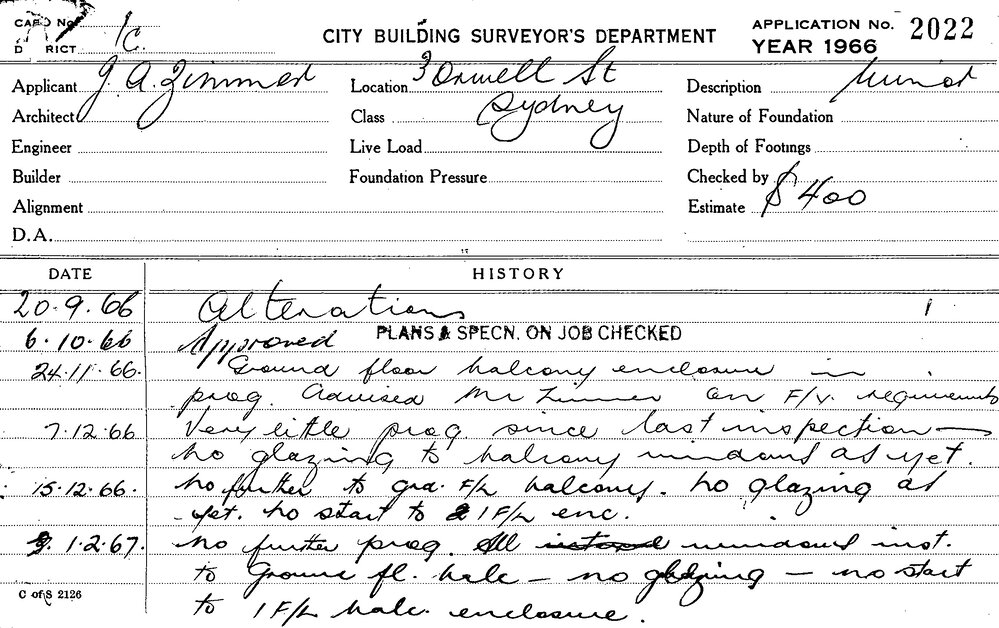 CARD No.
DISTRICT 1C.
CITY BUILDING SURVEYOR'S DEPARTMENT
APPLICATION No. 2022
YEAR 1966
Applicant J. A. Zimmer
Location 3 Orwell St
Description Minor
Architect
Class Sydney
Nature of Foundation
Engineer
Live Load
Depth of Footings
Builder
Foundation Pressure
Checked by
Alignment
Estimate $400
D.A.
DATE HISTORY
20.9.66 Alterations 1
6.10.66 Approved PLANS & SPECN. ON JOB CHECKED
24.11.66. Ground floor balcony enclosure in
prog. Advised Mr Zimmer on F/V. requirements
7.12.66 Very little prog. since last inspection —
no glazing to balcony windows as yet.
15.12.66. No further to grd. F/L balcony. no glazing as
yet. no start to 1 F/L enc.
1.2.67. No further prog. All windows inst.
to Ground fl. balc — no glazing — no start
to 1 F/L balc. enclosure.
C of S 2126